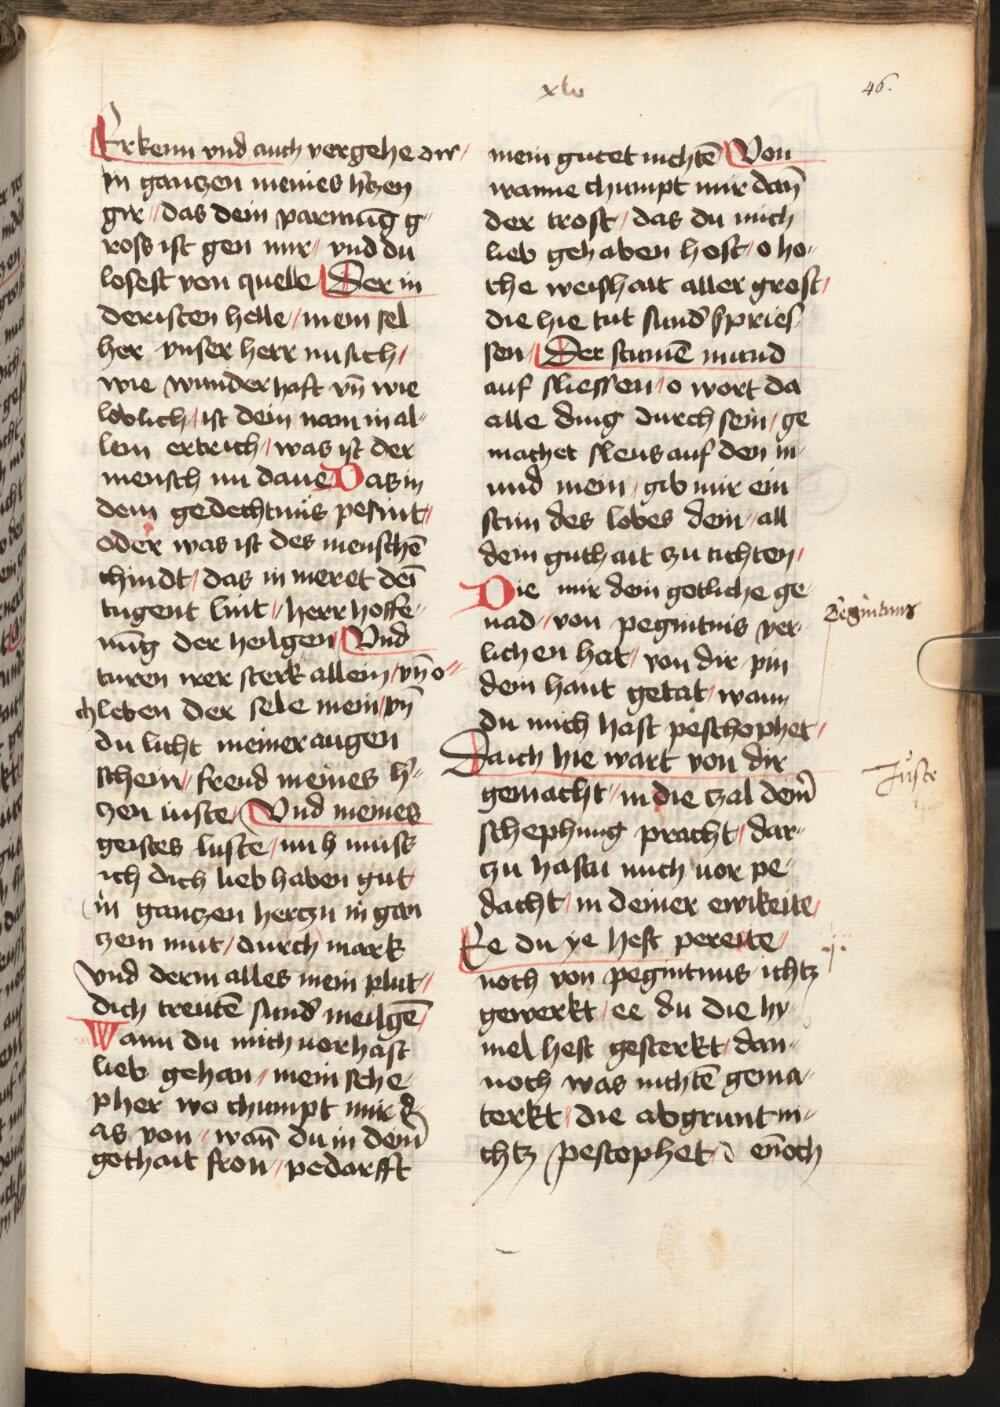 xlv
46.
Erkenn vnd auch vergehe dir /
in ganczen meines hʼczen
gir / das dein parmūg g-
ross ist gen mir / vnd du
losest von quelle / Der in
deristen helle / mein sel
her vnser herr nu sich /
wie wunderhaft vn̄ wie
loblich / ist dein nam in al-
lem ertrich / was ist der
mensch nu dane Das in
dem gedechtnüs pesint /
oder was ist des menschē
chindt / das in meret dei̅
tugent lint / herr hoffe-
nūg der heilgen / Vnd
turen irer sterk allein / vn̄ o-
ch leben der sele mein / vn̄
du licht meiner augen
schein / freud meines hʼ-
zen iuste / Vnd meines
geistes luste / mih muss
ich dich lieb haben gut
in ganczen herczn in gan
czem mut / durch mark
vnd derm alles mein plut /
dich treutē sundʼ meilgē /
Wann du mich uor hast
lieb gehan / mein sche-
pher wo chumpt mir d-
as von / wan̄ du in demʼ
gothait fron / pedarfft
mein gutet nichtē / Von
wanne chumpt mir dan̄
der trost / das du mich
lieb gehaben host / o ho-
che weishait aller grost /
die hie tut sundʼ spries-
sen / Der stumē mund
auf sliessen / o wort da
alle ding durch sein / ge
machet sleus auf den m-
und mein / gib mir ein
stim des lobes dein / all
dein guthait zu tichten /
Die mir dein gotliche ge-
nad / von pegintnis ver-
lichen hat / von dir pin
dein hant getat / wann
du mich hast peschophet /
Daich hie wart von dir
gemacht / in die zal deinʼ
schephung pracht / dar-
zu hastu mich uor pe-
dacht / in deiner ewikeite /
Ee du ye hest pereite /
noch von pegintnus ichtz
gewerkt / ee du die hy-
mel hest gesterkt / dan-
noch was nichtē gema-
terkt / die abgrunt ni-
chtz pestophet / d en̄och
Beginttnus
Juste